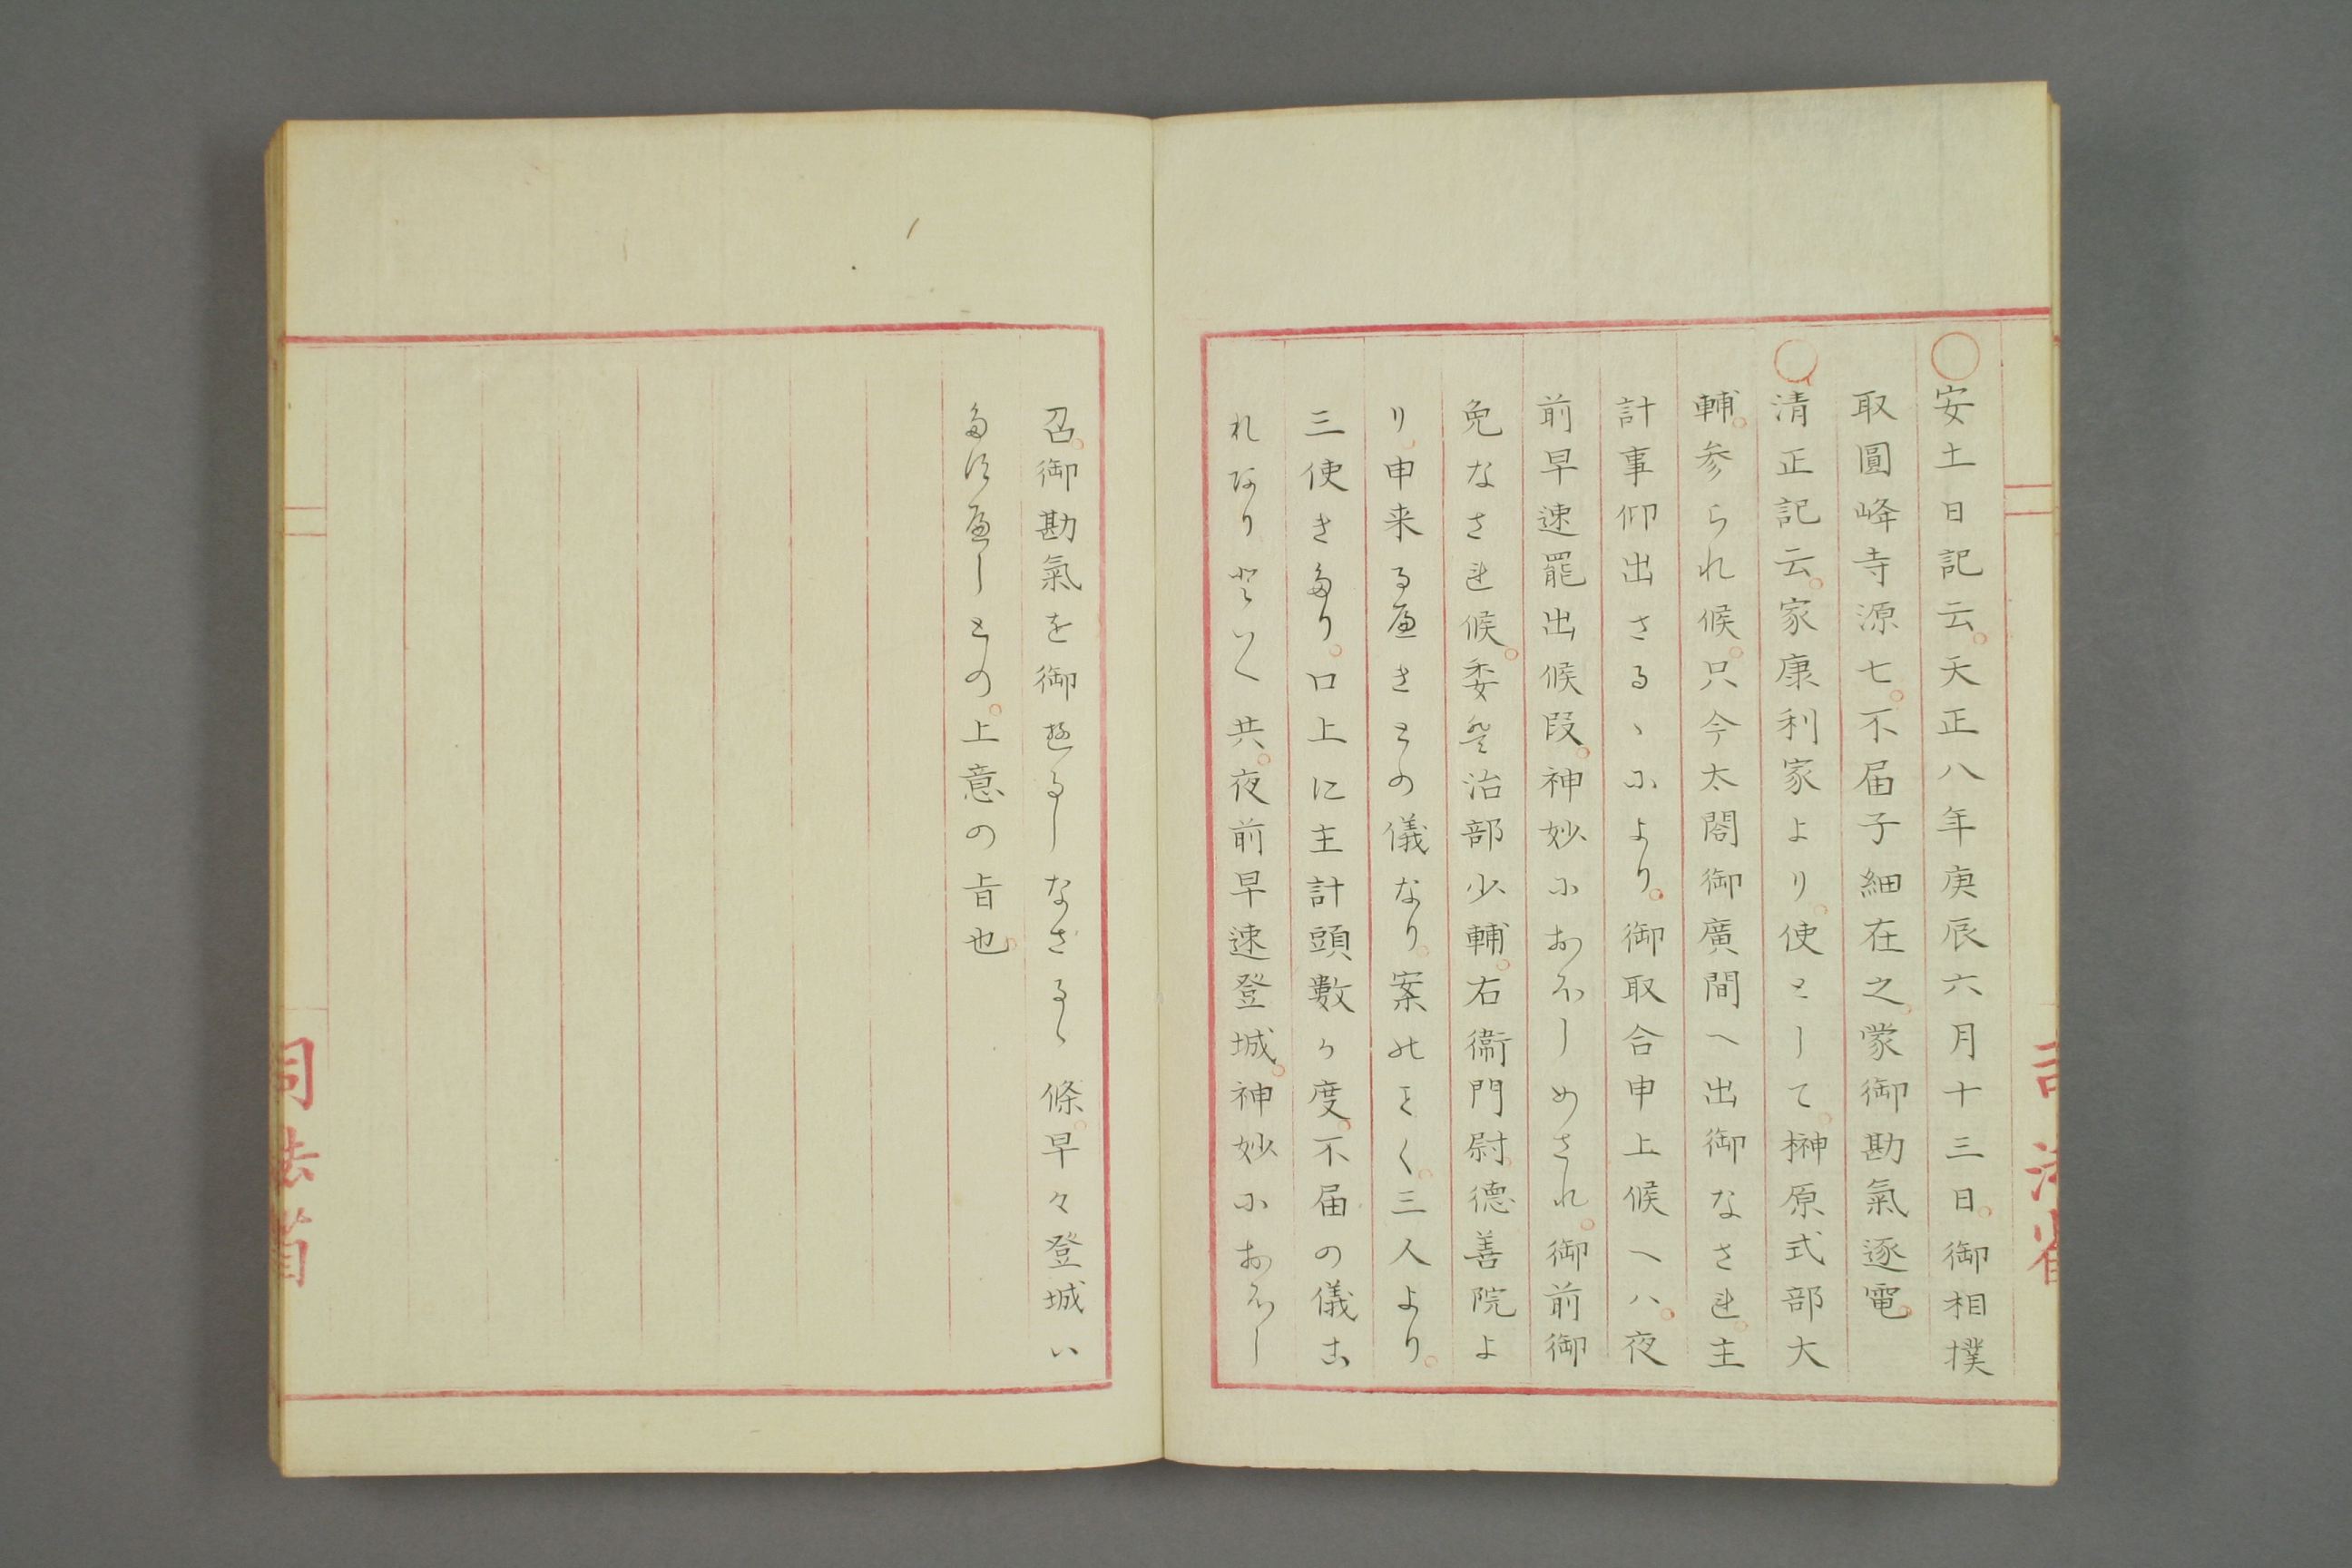 ○安土日記云。天正八年庚辰六月十三日。御相撲
取圓峰寺源七。不届子細在之。蒙御勘氣逐電。
○清正記云。家康利家より。使として。榊原式部大
輔。参られ候。只今太閤御廣間へ出御なされ。主
計事仰出さるゝによ り。御取合申上候へハ。夜
前早速罷出候段。神妙におほしめされ。御前御
免なされ候。委登治部少輔。右衛門尉。德善院よ
り。申来るへきとの儀なり。案のことく。三人より。
三使きたり。口上に主計頭數ヶ度。不届の儀こ
れありといへ共。夜前早速登城。神妙におほし
召。御勘氣を御ゆるしなさるゝ條。早々登城い
たすへしとの。上意の旨也。
司法省
司法省